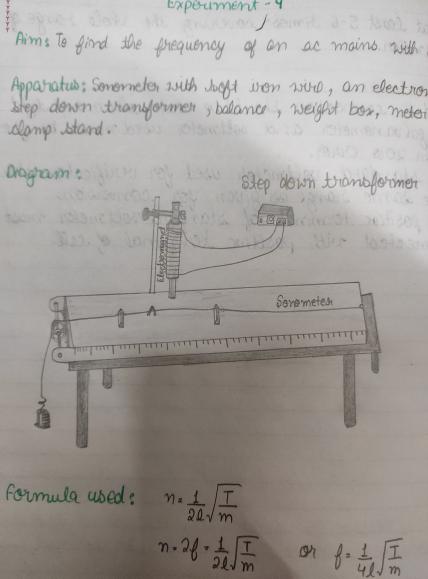 Experiment - 4
Aim: To find the frequency of an ac mains with
Apparatus: Sonometer with soft iron wire, an electron
step down transformer, balance, weight box, meter
clamp stand.
Diagram:
Step down transformer
Electromagnet
Sonometer
Formula used: n = 1/2l √T/m
n = 2f = 1/2l √T/m or f = 1/4l √T/m